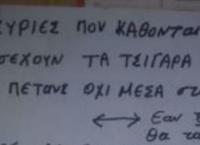 ΚΥΡΙΕΣ ΠΟΥ ΚΑΘΟΝΤΑΙ
ΣΕΧΟΥΝ ΤΑ ΤΣΙΓΑΡΑ
ΠΕΤΑΝΕ ΟΧΙ ΜΕΣΑ ΣΤ
↔ ΕΑΝ
ΘΑ ΤΑ